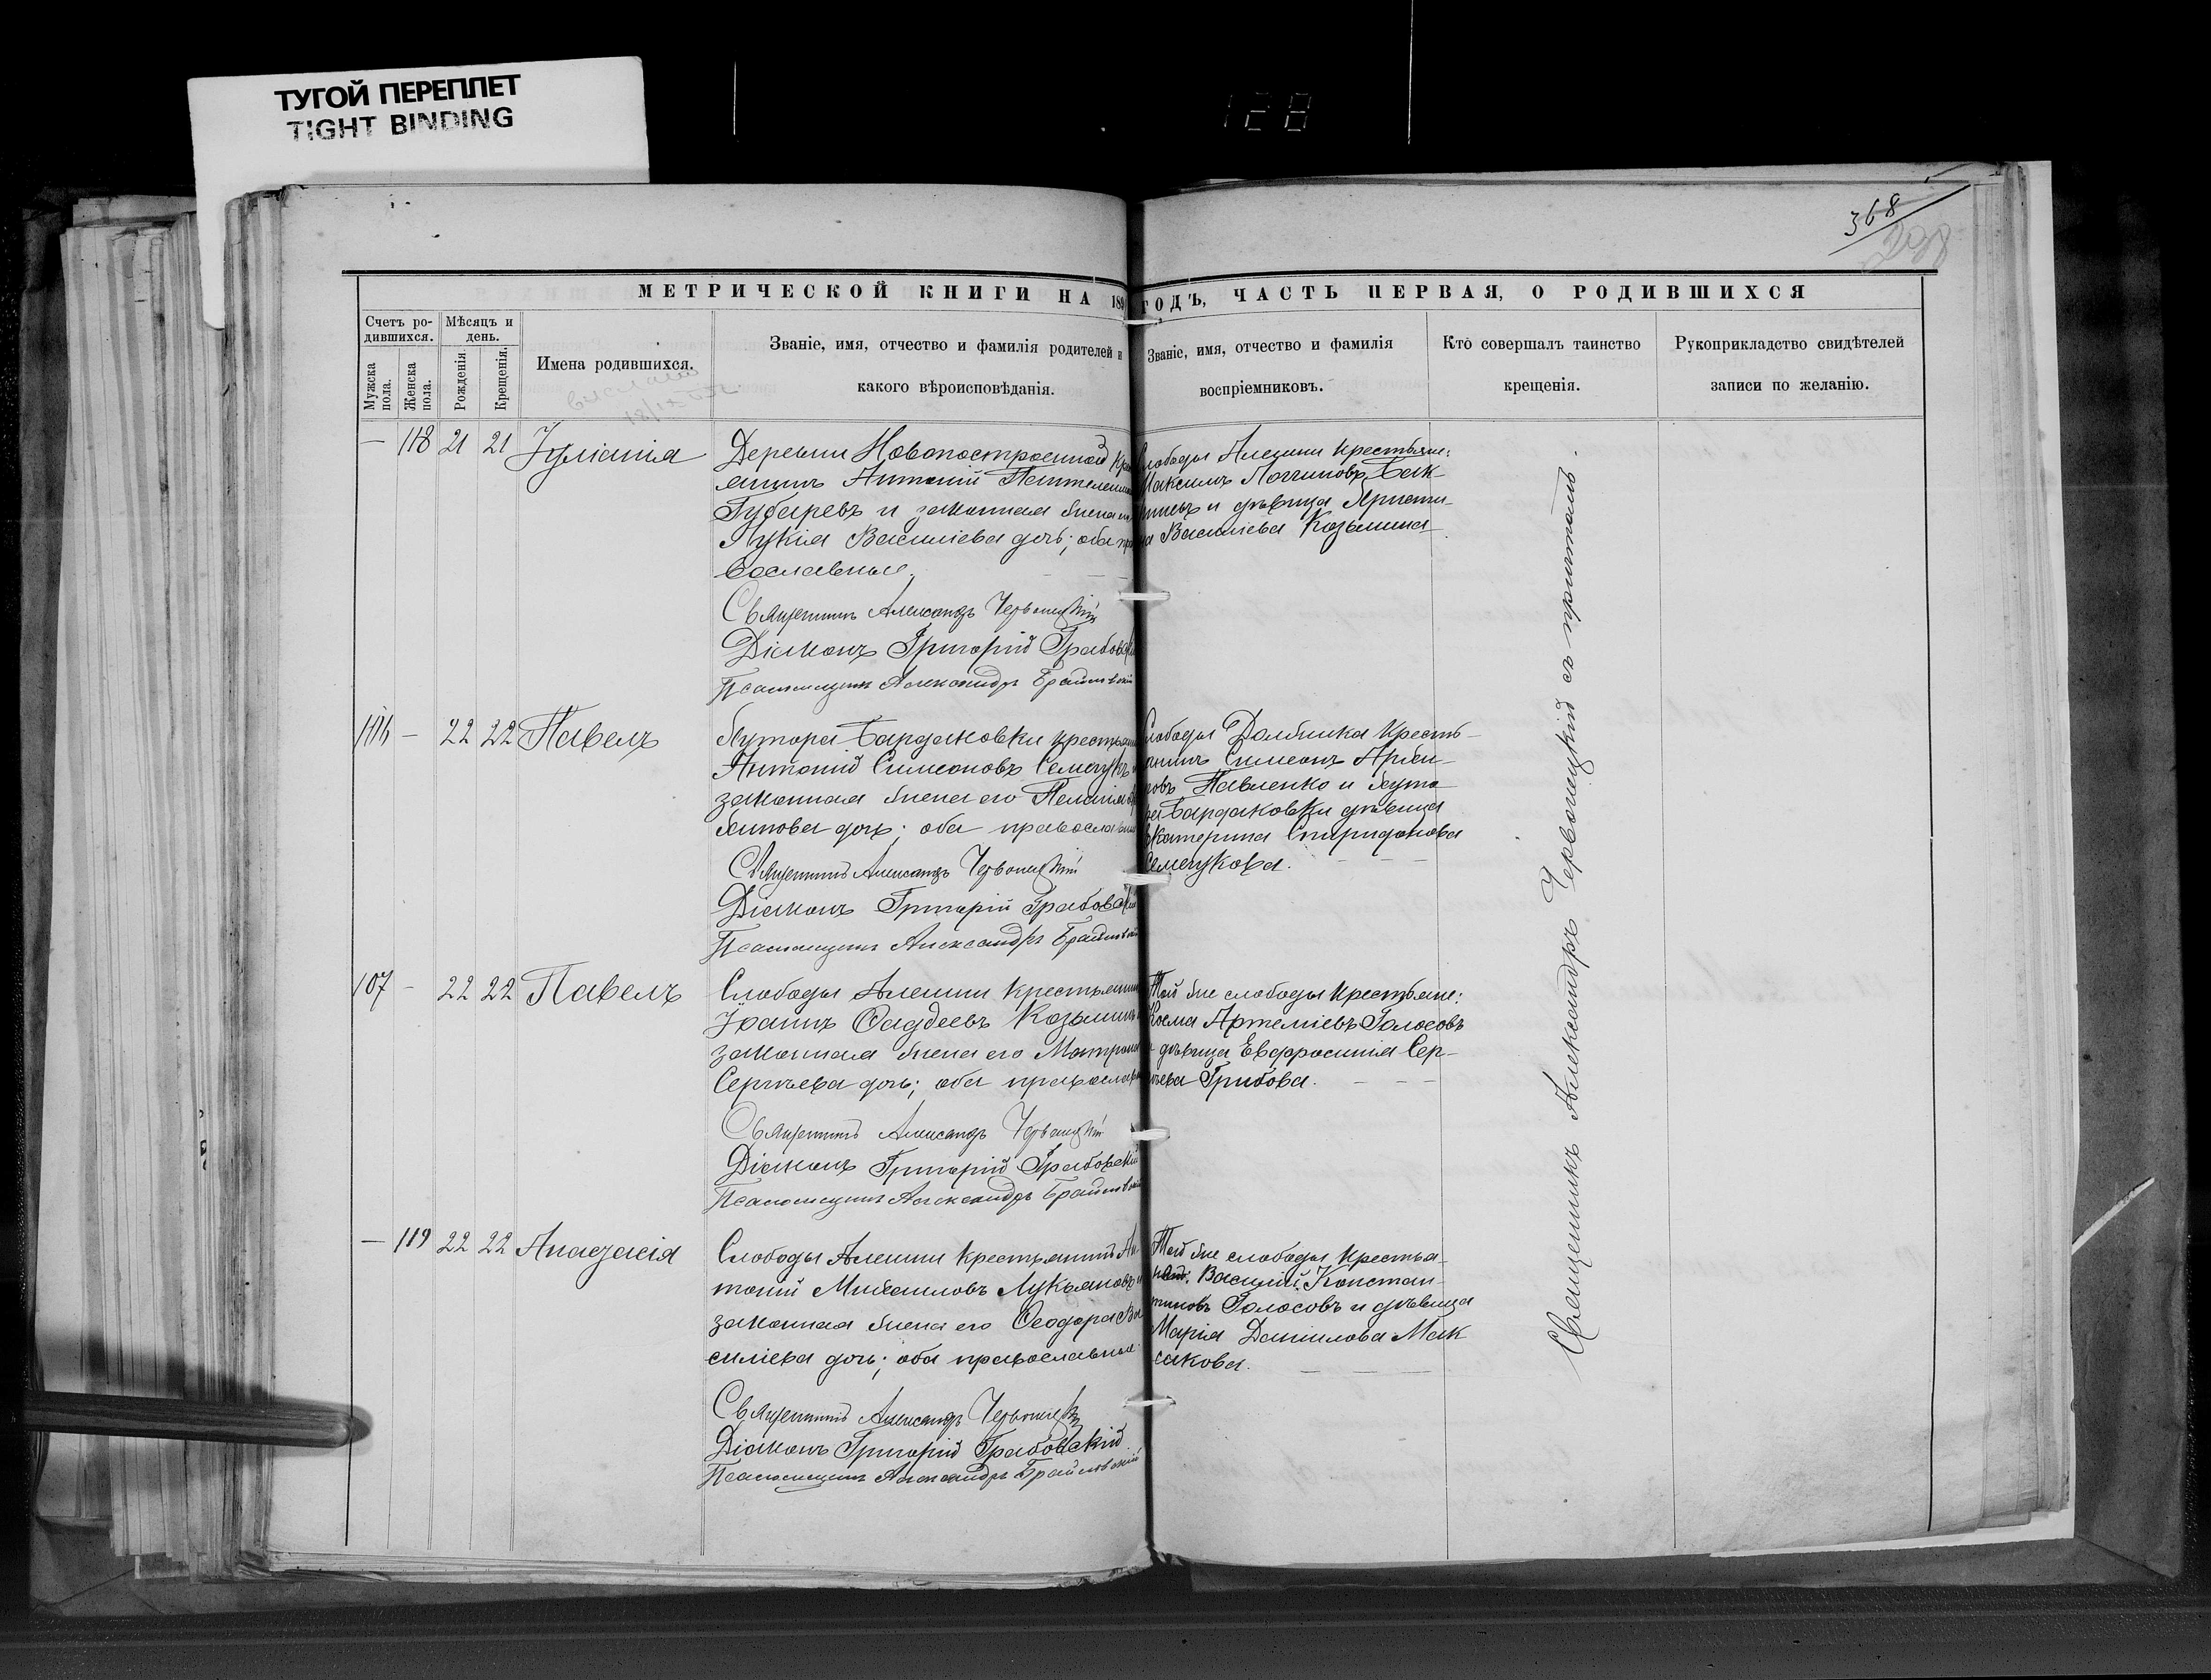 ТУГОЙ ПЕРЕПЛЕТ
TIGHT BINDING
128
368
МЕТРИЧЕСКОЙ КНИГИ НА 189 ГОДЪ, ЧАСТЬ ПЕРВАЯ, О РОДИВШИХСЯ
Счетъ ро-
дившихся.
Мѣсяцъ и
день.
Мужска
пола.
Женска
пола.
Рожденія.
Крещенія.
Имена родившихся.
Званіе, имя, отчество и фамилія родителей и
какого вѣроисповѣданія.
Званіе, имя, отчество и фамилія
воспріемниковъ.
Кто совершалъ таинство
крещенія.
Рукоприкладство свидѣтелей
записи по желанію.
— 118 21 21 Іуліанія
Деревни Новопостроенной
Антоній
Губаревъ и законная жена
Лукія Василіева дочь; оба пра
вославные.
Священникъ Александръ Червонецкій
Діаконъ Григорій Грабовскій
Псаломщикъ Александръ Брайловскій
Слободы Алешни крестьяне:
Максимъ Логгиновъ
и дѣвица
Василіева Козьмина
106 — 22 22 Павелъ
Хутора Бардаковки крестьянинъ
Антоній Симеоновъ Семчукъ и
законная жена его Пелагія
дочь; оба православные
Священникъ Александръ Червонецкій
Діаконъ Григорій Грабовскій
Псаломщикъ Александръ Брайловскій
Слободы Должика Кресть-
янинъ Симеонъ
Павленко и хуто
ра Бардаковки дѣвица
Екатерина Спиридонова
Семчукова.
107 — 22 22 Павелъ
Слободы Алешни крестьянинъ
Іоаннъ Фаддеевъ Козьминъ и
законная жена его Матрона
Сергѣева дочь; оба православные
Священникъ Александръ Червонецкій
Діаконъ Григорій Грабовскій
Псаломщикъ Александръ Брайловскій
Той же слободы Крестьяне:
Косма Артеміевъ Голосовъ
и дѣвица Евфросинія Сер-
гѣева Грибова.
— 119 22 22 Анастасія
Слободы Алешни Крестьянинъ Ан-
тоній Михаиловъ Лукьяновъ и
законная жена его Ѳеодора Ва
силіева дочь; оба православные.
Священникъ Александръ Червонецкій
Діаконъ Григорій Грабовскій
Псаломщикъ Александръ Брайловскій
Той же слободы Крестья-
не: Василій Констан-
тиновъ Голосовъ и дѣвица
Марія Даніилова Мак
сакова.
Священникъ Александръ Червонецкій съ причтомъ.